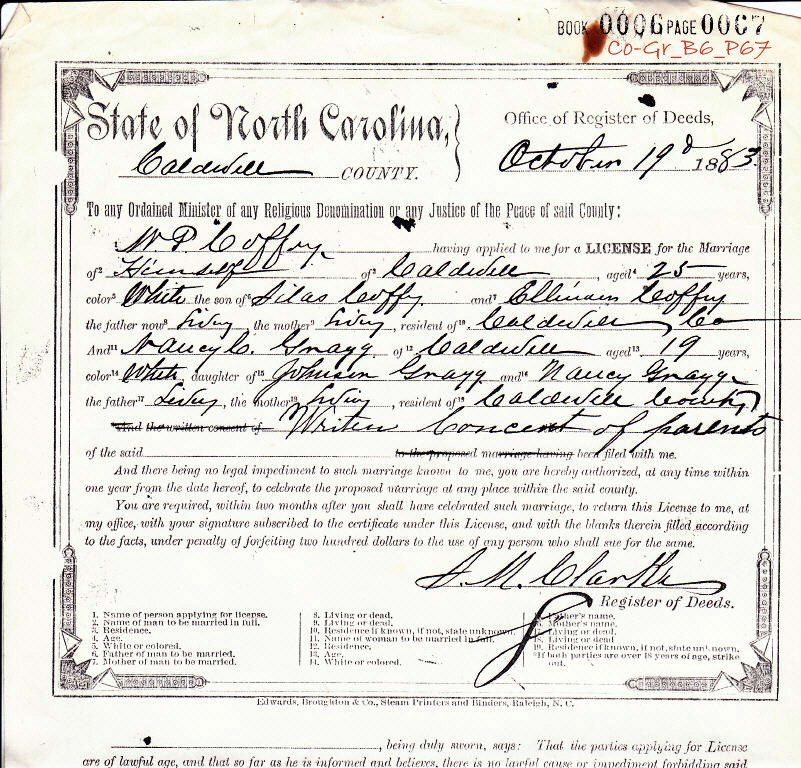 BOOK 0006 PAGE 0067
Co-Gr_B6_P67
State of North Carolina,
Office of Register of Deeds,
Caldwell COUNTY.
October 19d 1883.
To any Ordained Minister of any Religious Denomination or any Justice of the Peace of said County:
W. P. Coffey having applied to me for a LICENSE for the Marriage
of² Himself of³ Caldwell, aged⁴ 25 years,
color⁵ White the son of⁶ Silas Coffy and⁷ Coffry
the father now⁸ Living, the mother⁹ Living, resident of¹⁰ Caldwell Co
And¹¹ Nancy C. Gragg of¹² Caldwell aged¹³ 19 years,
color¹⁴ White daughter of¹⁵ Johnson Gragg and¹⁶ Nancy Gragg
the father¹⁷ Living, the mother¹⁸ Living, resident of¹⁹ Caldwell County
And the written consent of Writen Concent of parents
of the said to the proposed marriage having been filed with me.
And there being no legal impediment to such marriage known to me, you are hereby authorized, at any time within
one year from the date hereof, to celebrate the proposed marriage at any place within the said county.
You are required, within two months after you shall have celebrated such marriage, to return this License to me, at
my office, with your signature subscribed to the certificate under this License, and with the blanks therein filled according
to the facts, under penalty of forfeiting two hundred dollars to the use of any person who shall sue for the same.
M. Clarke
Register of Deeds.
8
1. Name of person applying for license.
2. Name of man to be married in full.
3. Residence.
4. Age.
5. White or colored.
6. Father of man to be married.
7. Mother of man to be married.
8. Living or dead.
9. Living or dead.
10. Residence if known, if not, state unknown.
11. Name of woman to be married in full.
12. Residence.
13. Age.
14. White or colored.
15. Father's name.
16. Mother's name.
17. Living or dead.
18. Living or dead
19. Residence if known, if not, state unknown.
*If both parties are over 18 years of age, strike
out.
Edwards, Broughton & Co., Steam Printers and Binders, Raleigh, N. C.
, being duly sworn, says: That the parties applying for License
are of lawful age, and that so far as he is informed and believes, there is no lawful cause or impediment forbidding said